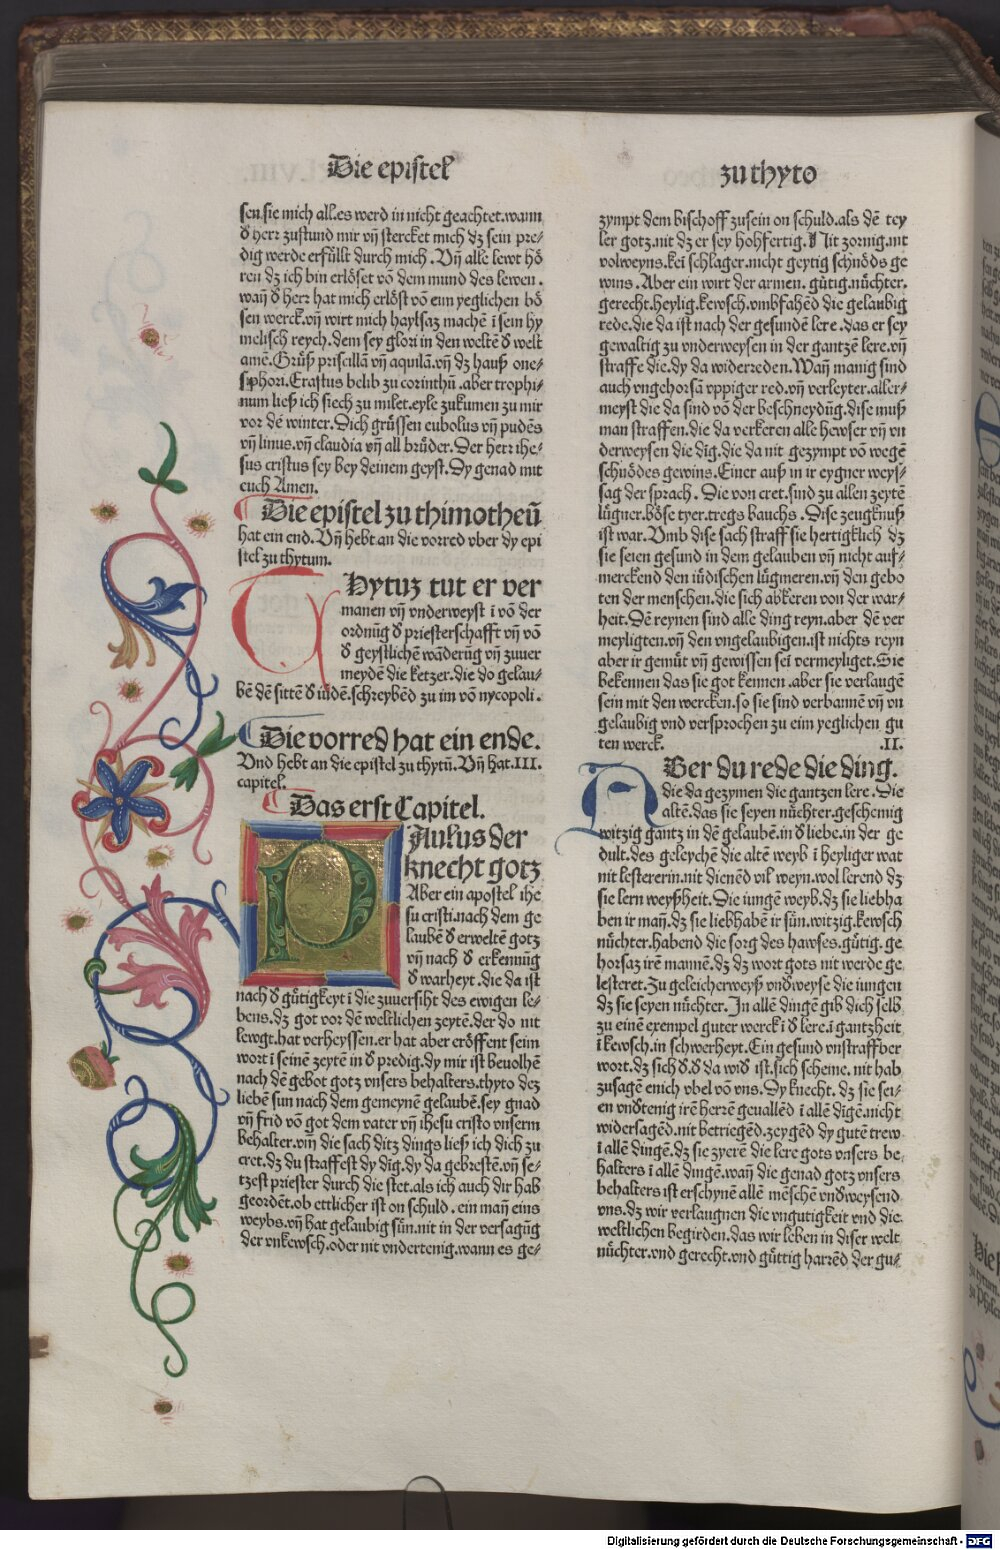 Die epistel
zu thyto
sen.sie mich all.es werd in nicht geachtet.wann
d̕ herr zustund mir vn̄ stercket mich dz sein pre⸗
dig werde erfüllt durch mich. Vn̄ alle lewt hö
ren dz ich bin erlöset vō dem mund des lewen.
wan̄ d̕ herr hat mich erlöst vō eim yeglichen bö
sen werck.vn̄ wirt mich haylsaz machē ī sein hy
melisch reych.dem sey glori in den weltē d̕ welt
amē.Grüß priscillā vn̄ aquilā.vn̄ dz hauß one⸗
siphori.Erastus belib zu corinthū.aber trophi⸗
num ließ ich siech zu milet.eyle zukumen zu mir
vor dē winter.Dich grüssen eubolus vn̄ pudēs
vn̄ linus.vn̄ claudia vn̄ all brüder.Der herr ihe⸗
sus cristus sey bey deinem geyst.Dy genad mit
euch Amen.
Die epistel zu thimotheū
hat ein end. Vn̄ hebt an die vorred vber dy epi
stel zu thytum.
Thytuz tut er ver
manen vn̄ vnderweyst ī vō der
ordnūg d̕ priesterschafft vn̄ vō
d̕ geystlichē wāderūg vn̄ zuuer
meydē die ketzer.die do gelau⸗
bē dē sittē d̕ iudē.schreybēd zu im vō nycopoli.
Die vorred hat ein ende.
Vnd hebt an die epistel zu thytū.Vn̄ hat.III.
capitel.
Das erst Capitel.
Paulus der
knecht gotz
Aber ein apostel ihe
su cristi.nach dem ge
laubē d̕ erweltē gotz
vn̄ nach d̕ erkennūg
d̕ warheyt.die da ist
nach d̕ gütigkeyt ī die zuuersiht des ewigen le⸗
bens.dz got vor dē weltlichen zeytē.der do nit
lewgt.hat verheyssen.er hat aber eröffent sein
wort ī seinē zeytē in d̕ predig.dy mir ist beuolhē
nach dē gebot gotz vnsers behalters.thyto dez
liebē sun nach dem gemeynē gelaubē.sey gnad
vn̄ frid vō got dem vater vn̄ ihesu cristo vnserm
behalter.vm̄ die sach ditz dings ließ ich dich zu
cret.dz du straffest dy dīg.dy da gebrestē.vn̄ se⸗
tzest priester durch die stet.als ich auch dir hab
geordēt.ob ettlicher ist on schuld. ein man̄ eins
weybs.vn̄ hat gelaubig sün.nit in der versagūg
der vnkewsch.oder nit vndertenig.wann es ge⸗
zympt dem bischoff zusein on schuld.als dē tey
ler gotz.nit dz er sey hohfertig.Nit zornig.nit
volweyns.kei schlager.nicht geytig schnöds ge
wins. Aber ein wirt der armen. gütig.nüchter.
gerecht.heylig.kewsch.vmbfahēd die gelaubig
rede.die da ist nach der gesundē lere.das er sey
gewaltig zu vnderweysen in der gantzē lere.vn̄
straffe die.dy da widerreden.Wan̄ manig sind
auch vngehorsā vppiger red.vn̄ verleyter.aller⸗
meyst die da sind vō der beschneydūg.dise muß
man straffen.die da verkeren alle hewser vn̄ vn
derweysen die dīg.die da nit gezympt vō wegē
schnödes gewins.Einer auß in ir eygner weys⸗
sag der sprach. Die von cret.sind zu allen zeytē
lügner.böse tyer.tregs bauchs. Dise zeugknuß
ist war.Vmb dise sach straff sie hertigklich dz
sie seien gesund in dem gelauben vn̄ nicht auf⸗
merckend den iüdischen lügmeren.vn̄ den gebo
ten der menschen.die sich abkeren von der war⸗
heit.Dē reynen sind alle ding reyn.aber dē ver
meyligten.vn̄ den vngelaubigen.ist nichts reyn
aber ir gemüt vn̄ gewissen sei vermeyliget.Sie
bekennen das sie got kennen.aber sie verlaugē
sein mit den wercken.so sie sind verbannē vn̄ vn
gelaubig vnd versprochen zu eim yeglichen gu
ten werck. .II.
Aber du rede die ding.
die da gezymen die gantzen lere. Die
altē.das sie seyen nüchter.geschemig
witzig gantz in dē gelaubē.in d̕ liebe.in der ge
dult.des geleychē die altē weyb ī heyliger wat
nit lestererin.nit dienēd vil weyn.wol lerend dz
sie lern weyßheit. Die iungē weyb.dz sie liebha
ben ir man̄.dz sie liebhabē ir sün.witzig.kewsch
nüchter.habend die sorg des hawses.gütig.ge
horsaz irē mannē.dz dz wort gots nit werde ge
lesteret.Zu geleicherweyß vnd̕weyse die iungen
dz sie seyen nüchter. In allē dingē gib dich selb
zu einē exempel guter werck ī d̕ lere.ī gantzheit
ī kewsch.in schwerheyt.Ein gesund vnstraffber
wort.dz sich d̕.d̕ da wid̕ ist.sich scheme. nit hab
zusagē enich vbel vō vns. Dy knecht. dz sie sei⸗
en vnd̕tenig irē herrē geuallēd ī allē dīgē.nicht
widersagēd.nit betriegēd.zeygēd dy gutē trew
ī allē dingē.dz sie zyerē die lere gots vnsers be⸗
halters ī allē dingē.wan̄ die genad gotz vnsers
behalters ist erschynē allē mēschē vnd̕weysend
vns.dz wir verlaugnen die vngutigkeit vnd die
weltlichen begirden.das wir leben in diser welt
nüchter.vnd gerecht.vnd güttig harrēd der gu⸗
Digitalisierung gefördert durch die Deutsche Forschungsgemeinschaft - DFG